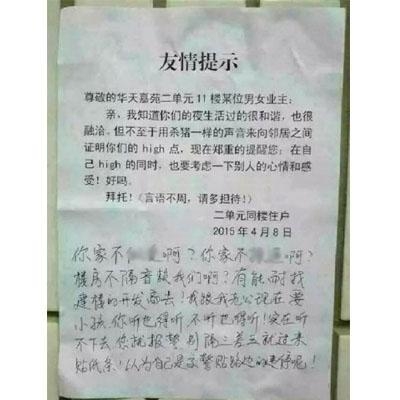 友情提示
尊敬的华天嘉苑二单元11楼某位男女业主:
亲,我知道你们的夜生活过的很和谐,也很
融洽。但不至于用杀猪一样的声音来向邻居之间
证明你们的high点,现在郑重的提醒您:在自
己high的同时,也要考虑一下别人的心情和感
受!好吗。
拜托!(言语不周,请多担待!)
二单元同楼住户
2015年4月8日
你家不啊?你家不啊?
楼房不隔音赖我们啊?有能耐找
建楼的开发商去!我跟我老公现在要
小孩,你听也得听,不听也得听!实在听
不下去你就报警,别隔三差五就过来
贴纸条!以为自己是交警贴